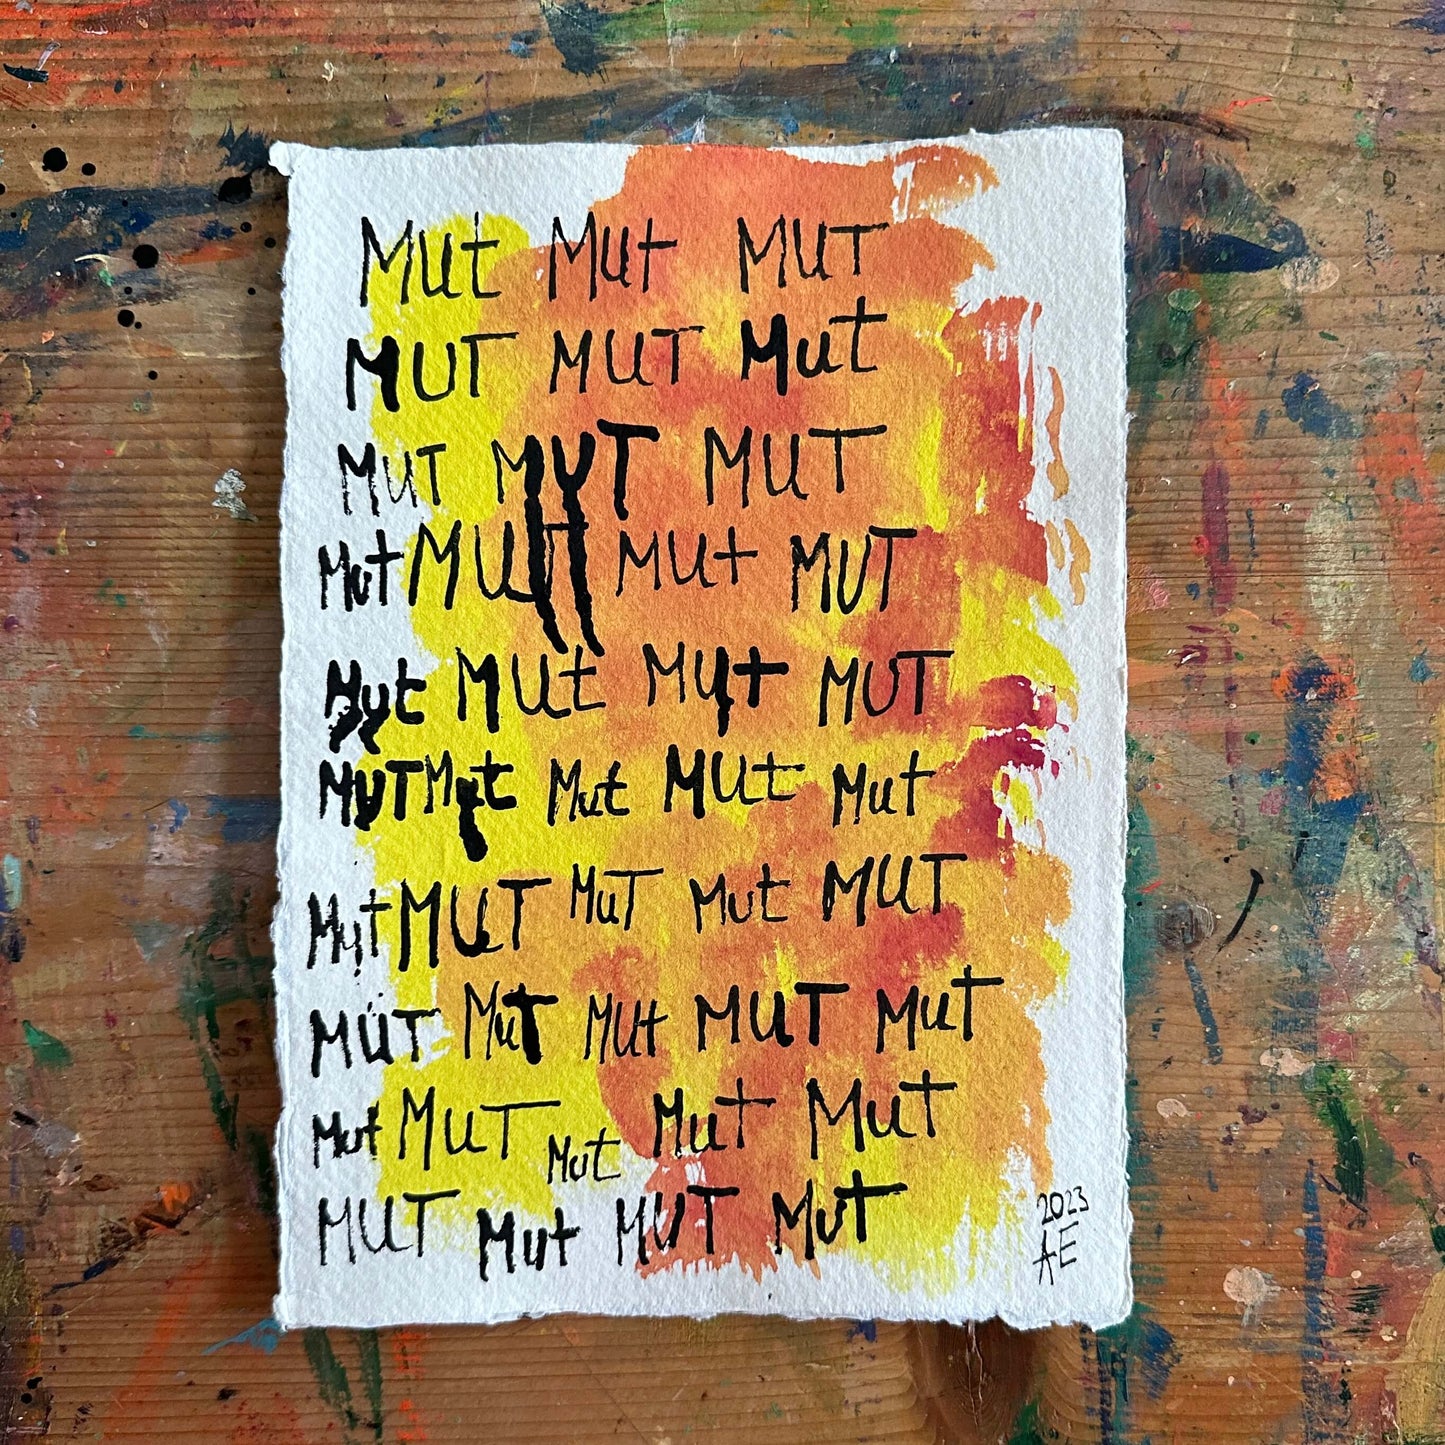 Mut Mut MUT
MUT MUT Mut
MUT MUT MUT
Mut Mut Mut MUT
Mut Mut Mut MUT
MUT Mut Mut Mut Mut
Mut MUT MuT Mut MUT
MUT MuT Mut MUT Mut
Mut MuT Mut Mut Mut
MUT Mut MUT Mut
2023
AE